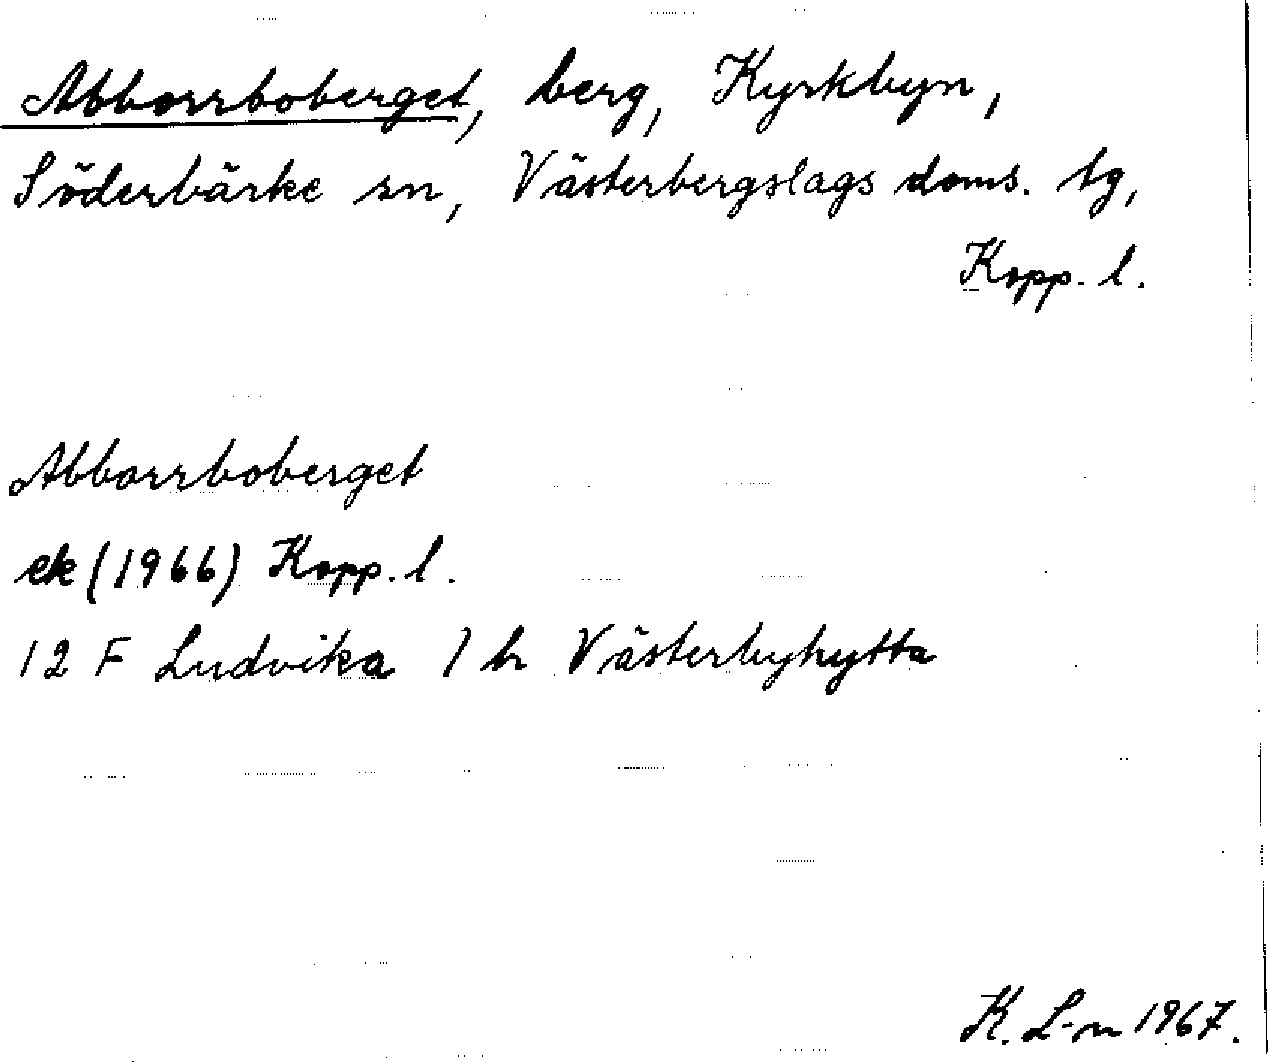 Abborrboberget, berg, Kyrkbyn,
Söderbärke sn, Västerbergslags doms. tg,
Kopp. l.
Abborrboberget
ek (1966) Kopp. l.
12 F Ludvika 1 h Västerbyhytta
K. L-n 1967.